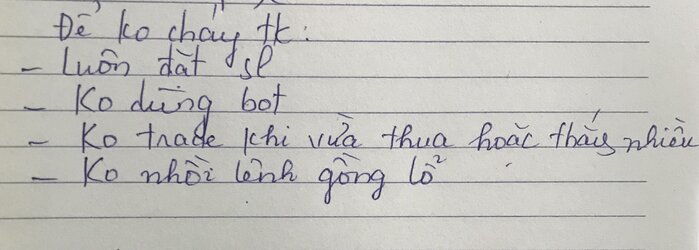 Để ko cháy tk:
- Luôn đặt sl
- Ko dùng bot
- Ko trade khi vừa thua hoặc thắng nhiều
- Ko nhồi lệnh gồng lỗ